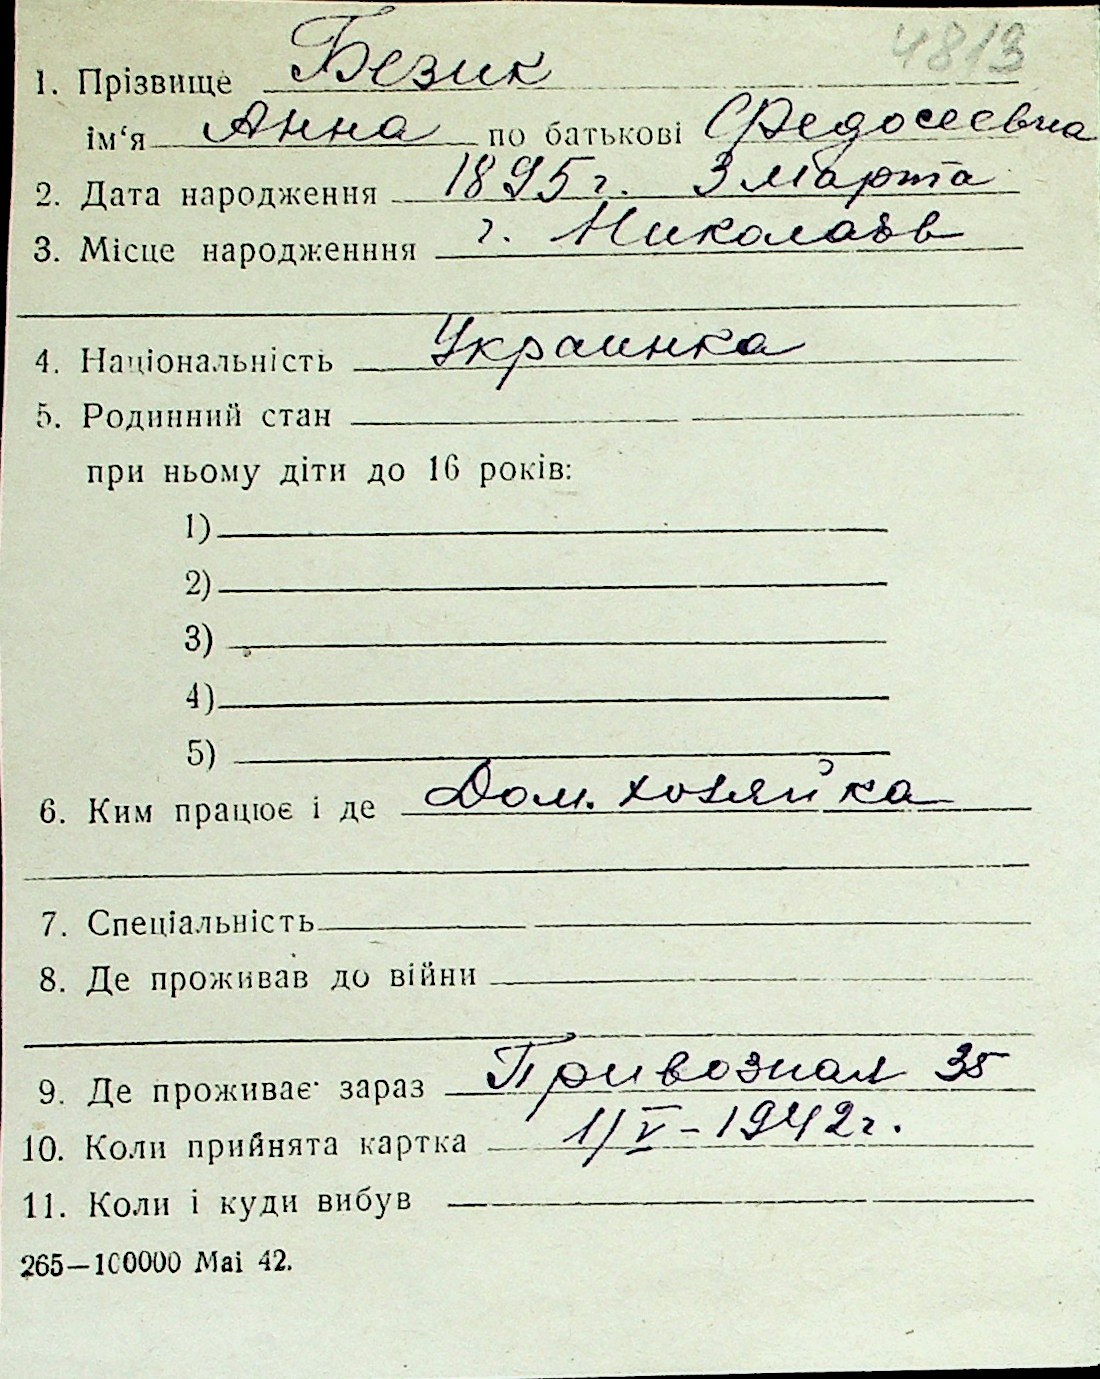 4813
1. Прізвище Безик
ім‘я Анна по батькові Федосеевна
2. Дата народження 1895 г. 3 марта
3. Місце народженння г. Николаев
4. Національність Украинка
5. Родинний стан
при ньому діти до 16 років:
1)
2)
3)
4)
5)
6. Ким працює і де Дом. хозяйка
7. Спеціальність
8. Де проживав до війни
9. Де проживає зараз Привозная 35
10. Коли прийнята картка 1/V – 1942 г.
11. Коли і куди вибув
265—100000 Mai 42.